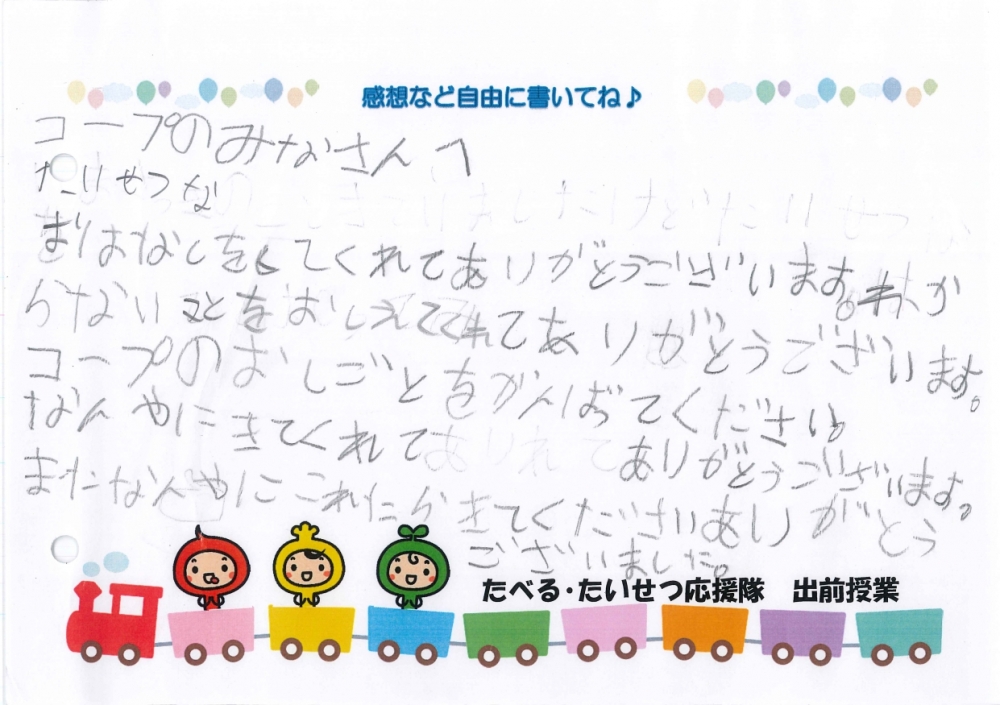 感想など自由に書いてね♪
コープのみなさんへ
たいせつな
おはなしをしてくれてありがとうございます。わか
らないことをおしえてくれてありがとうございます。
コープのおしごとをがんばてください。
なんやにきてくれてありがとうございます。
またなんやにこれたらきてくださいありがとう
ございました。
たべる・たいせつ応援隊 出前授業